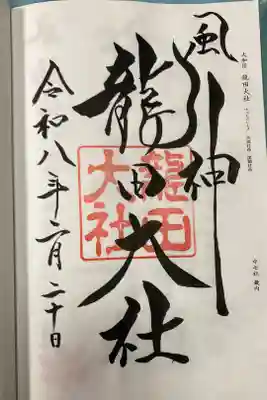 大和国 龍田大社
風神
龍田大社
龍田
大社
令和八年二月二十日